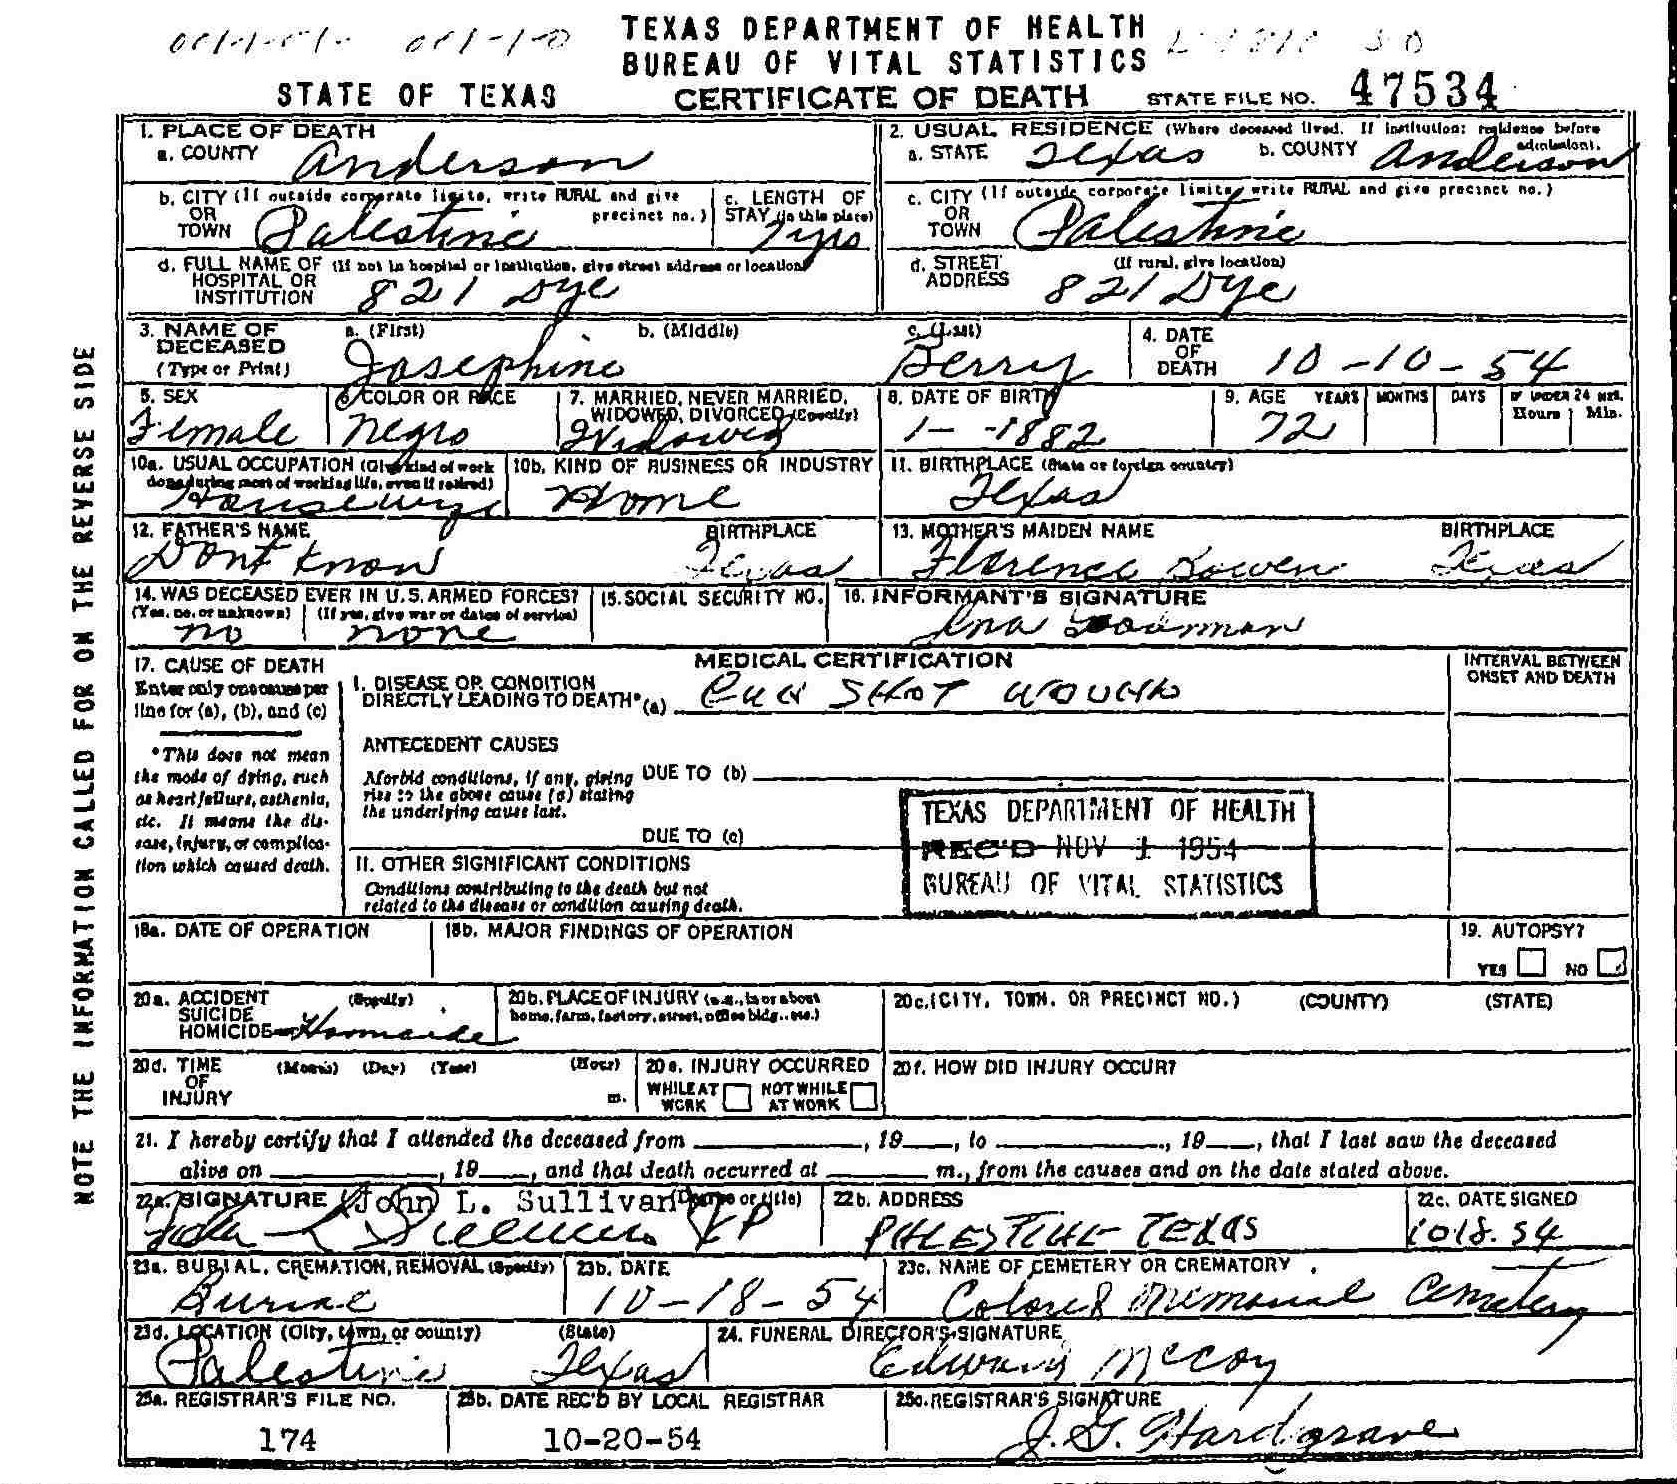 TEXAS DEPARTMENT OF HEALTH
BUREAU OF VITAL STATISTICS
STATE OF TEXAS CERTIFICATE OF DEATH STATE FILE NO. 47534
NOTE THE INFORMATION CALLED FOR ON THE REVERSE SIDE
1. PLACE OF DEATH
a. COUNTY Anderson
2. USUAL RESIDENCE (Where deceased lived. If institution: residence before admission).
a. STATE Texas b. COUNTY Anderson
b. CITY (If outside corporate limits, write RURAL and give precinct no.)
OR
TOWN Palestine
c. LENGTH OF
STAY (in this place)
7 yrs
c. CITY (If outside corporate limits, write RURAL and give precinct no.)
OR
TOWN Palestine
d. FULL NAME OF (If not in hospital or institution, give street address or location)
HOSPITAL OR
INSTITUTION 821 Dye
d. STREET (If rural, give location)
ADDRESS 821 Dye
3. NAME OF a. (First) b. (Middle) c. (Last)
DECEASED
(Type or Print) Josephine Berry
4. DATE
OF
DEATH 10-10-54
5. SEX
Female
6. COLOR OR RACE
Negro
7. MARRIED, NEVER MARRIED,
WIDOWED, DIVORCED (Specify)
Widowed
8. DATE OF BIRTH
1- -1882
9. AGE YEARS MONTHS DAYS IF UNDER 24 HRS.
Hours Min.
72
10a. USUAL OCCUPATION (Give kind of work
done during most of working life, even if retired)
Housewife
10b. KIND OF BUSINESS OR INDUSTRY
Home
11. BIRTHPLACE (State or foreign country)
Texas
12. FATHER'S NAME BIRTHPLACE
Dont Know Texas
13. MOTHER'S MAIDEN NAME BIRTHPLACE
Florence Bowen Texas
14. WAS DECEASED EVER IN U.S. ARMED FORCES?
(Yes, no, or unknown) (If yes, give war or dates of service)
no none
15. SOCIAL SECURITY NO.
16. INFORMANT'S SIGNATURE
Ina
17. CAUSE OF DEATH
Enter only one cause per
line for (a), (b), and (c)
*This does not mean
the mode of dying, such
as heart failure, asthenia,
etc. It means the dis-
ease, injury, or complica-
tion which caused death.
MEDICAL CERTIFICATION
INTERVAL BETWEEN
ONSET AND DEATH
I. DISEASE OR CONDITION
DIRECTLY LEADING TO DEATH* (a) GUN SHOT WOUND
ANTECEDENT CAUSES
Morbid conditions, if any, giving DUE TO (b)
rise to the above cause (a) stating
the underlying cause last.
DUE TO (c)
II. OTHER SIGNIFICANT CONDITIONS
Conditions contributing to the death but not
related to the disease or condition causing death.
TEXAS DEPARTMENT OF HEALTH
REC'D NOV 1 1954
BUREAU OF VITAL STATISTICS
18a. DATE OF OPERATION
18b. MAJOR FINDINGS OF OPERATION
19. AUTOPSY?
YES NO
20a. ACCIDENT (Specify)
SUICIDE
HOMICIDE Homicide
20b. PLACE OF INJURY (e.g., in or about
home, farm, factory, street, office bldg., etc.)
20c. (CITY, TOWN, OR PRECINCT NO.) (COUNTY) (STATE)
20d. TIME (Month) (Day) (Year) (Hour)
OF
INJURY m.
20e. INJURY OCCURRED
WHILE AT WORK NOT WHILE AT WORK
20f. HOW DID INJURY OCCUR?
21. I hereby certify that I attended the deceased from , 19 , to , 19 , that I last saw the deceased
alive on , 19 , and that death occurred at m., from the causes and on the date stated above.
22a. SIGNATURE John L. Sullivan (Degree or title)
John L Sullivan JP
22b. ADDRESS
PALESTINE TEXAS
22c. DATE SIGNED
10.18.54
23a. BURIAL, CREMATION, REMOVAL (Specify)
Burial
23b. DATE
10-18-54
23c. NAME OF CEMETERY OR CREMATORY
Colored Memorial Cemetery
23d. LOCATION (City, town, or county) (State)
Palestine Texas
24. FUNERAL DIRECTOR'S SIGNATURE
Edward McCoy
25a. REGISTRAR'S FILE NO.
174
25b. DATE REC'D BY LOCAL REGISTRAR
10-20-54
25c. REGISTRAR'S SIGNATURE
J. G. Hardgrave